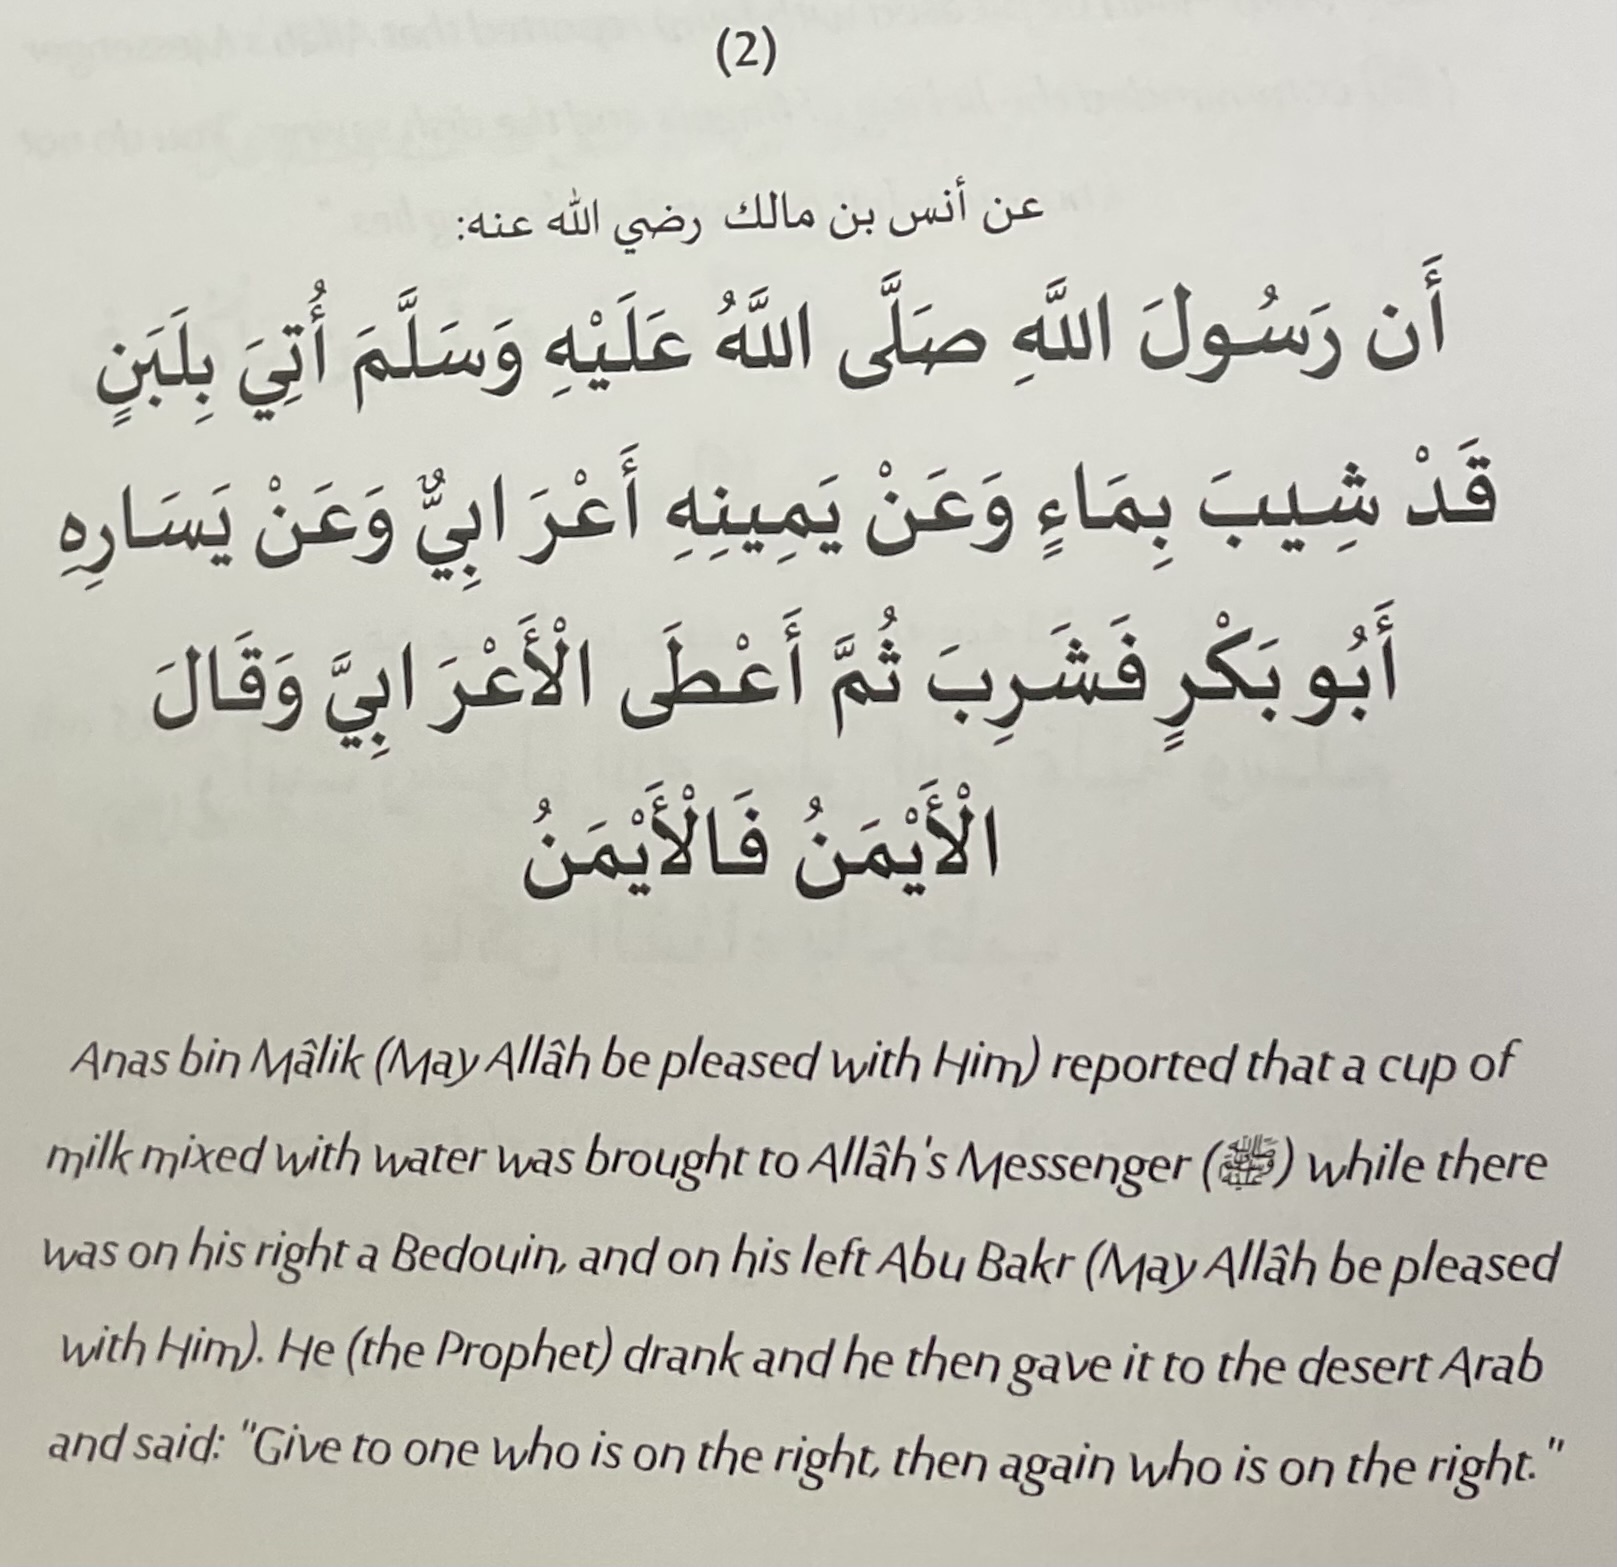 (2)
عن أنس بن مالك رضي الله عنه:
أَن رَسُولَ اللَّهِ صَلَّى اللَّهُ عَلَيْهِ وَسَلَّمَ أُتِيَ بِلَبَنٍ
قَدْ شِيبَ بِمَاءٍ وَعَنْ يَمِينِهِ أَعْرَابِيٌّ وَعَنْ يَسَارِهِ
أَبُو بَكْرٍ فَشَرِبَ ثُمَّ أَعْطَى الْأَعْرَابِيَّ وَقَالَ
الْأَيْمَنُ فَالْأَيْمَنُ
Anas bin Mâlik (May Allâh be pleased with Him) reported that a cup of
milk mixed with water was brought to Allâh's Messenger (ﷺ) while there
was on his right a Bedouin, and on his left Abu Bakr (May Allâh be pleased
with Him). He (the Prophet) drank and he then gave it to the desert Arab
and said: "Give to one who is on the right, then again who is on the right."